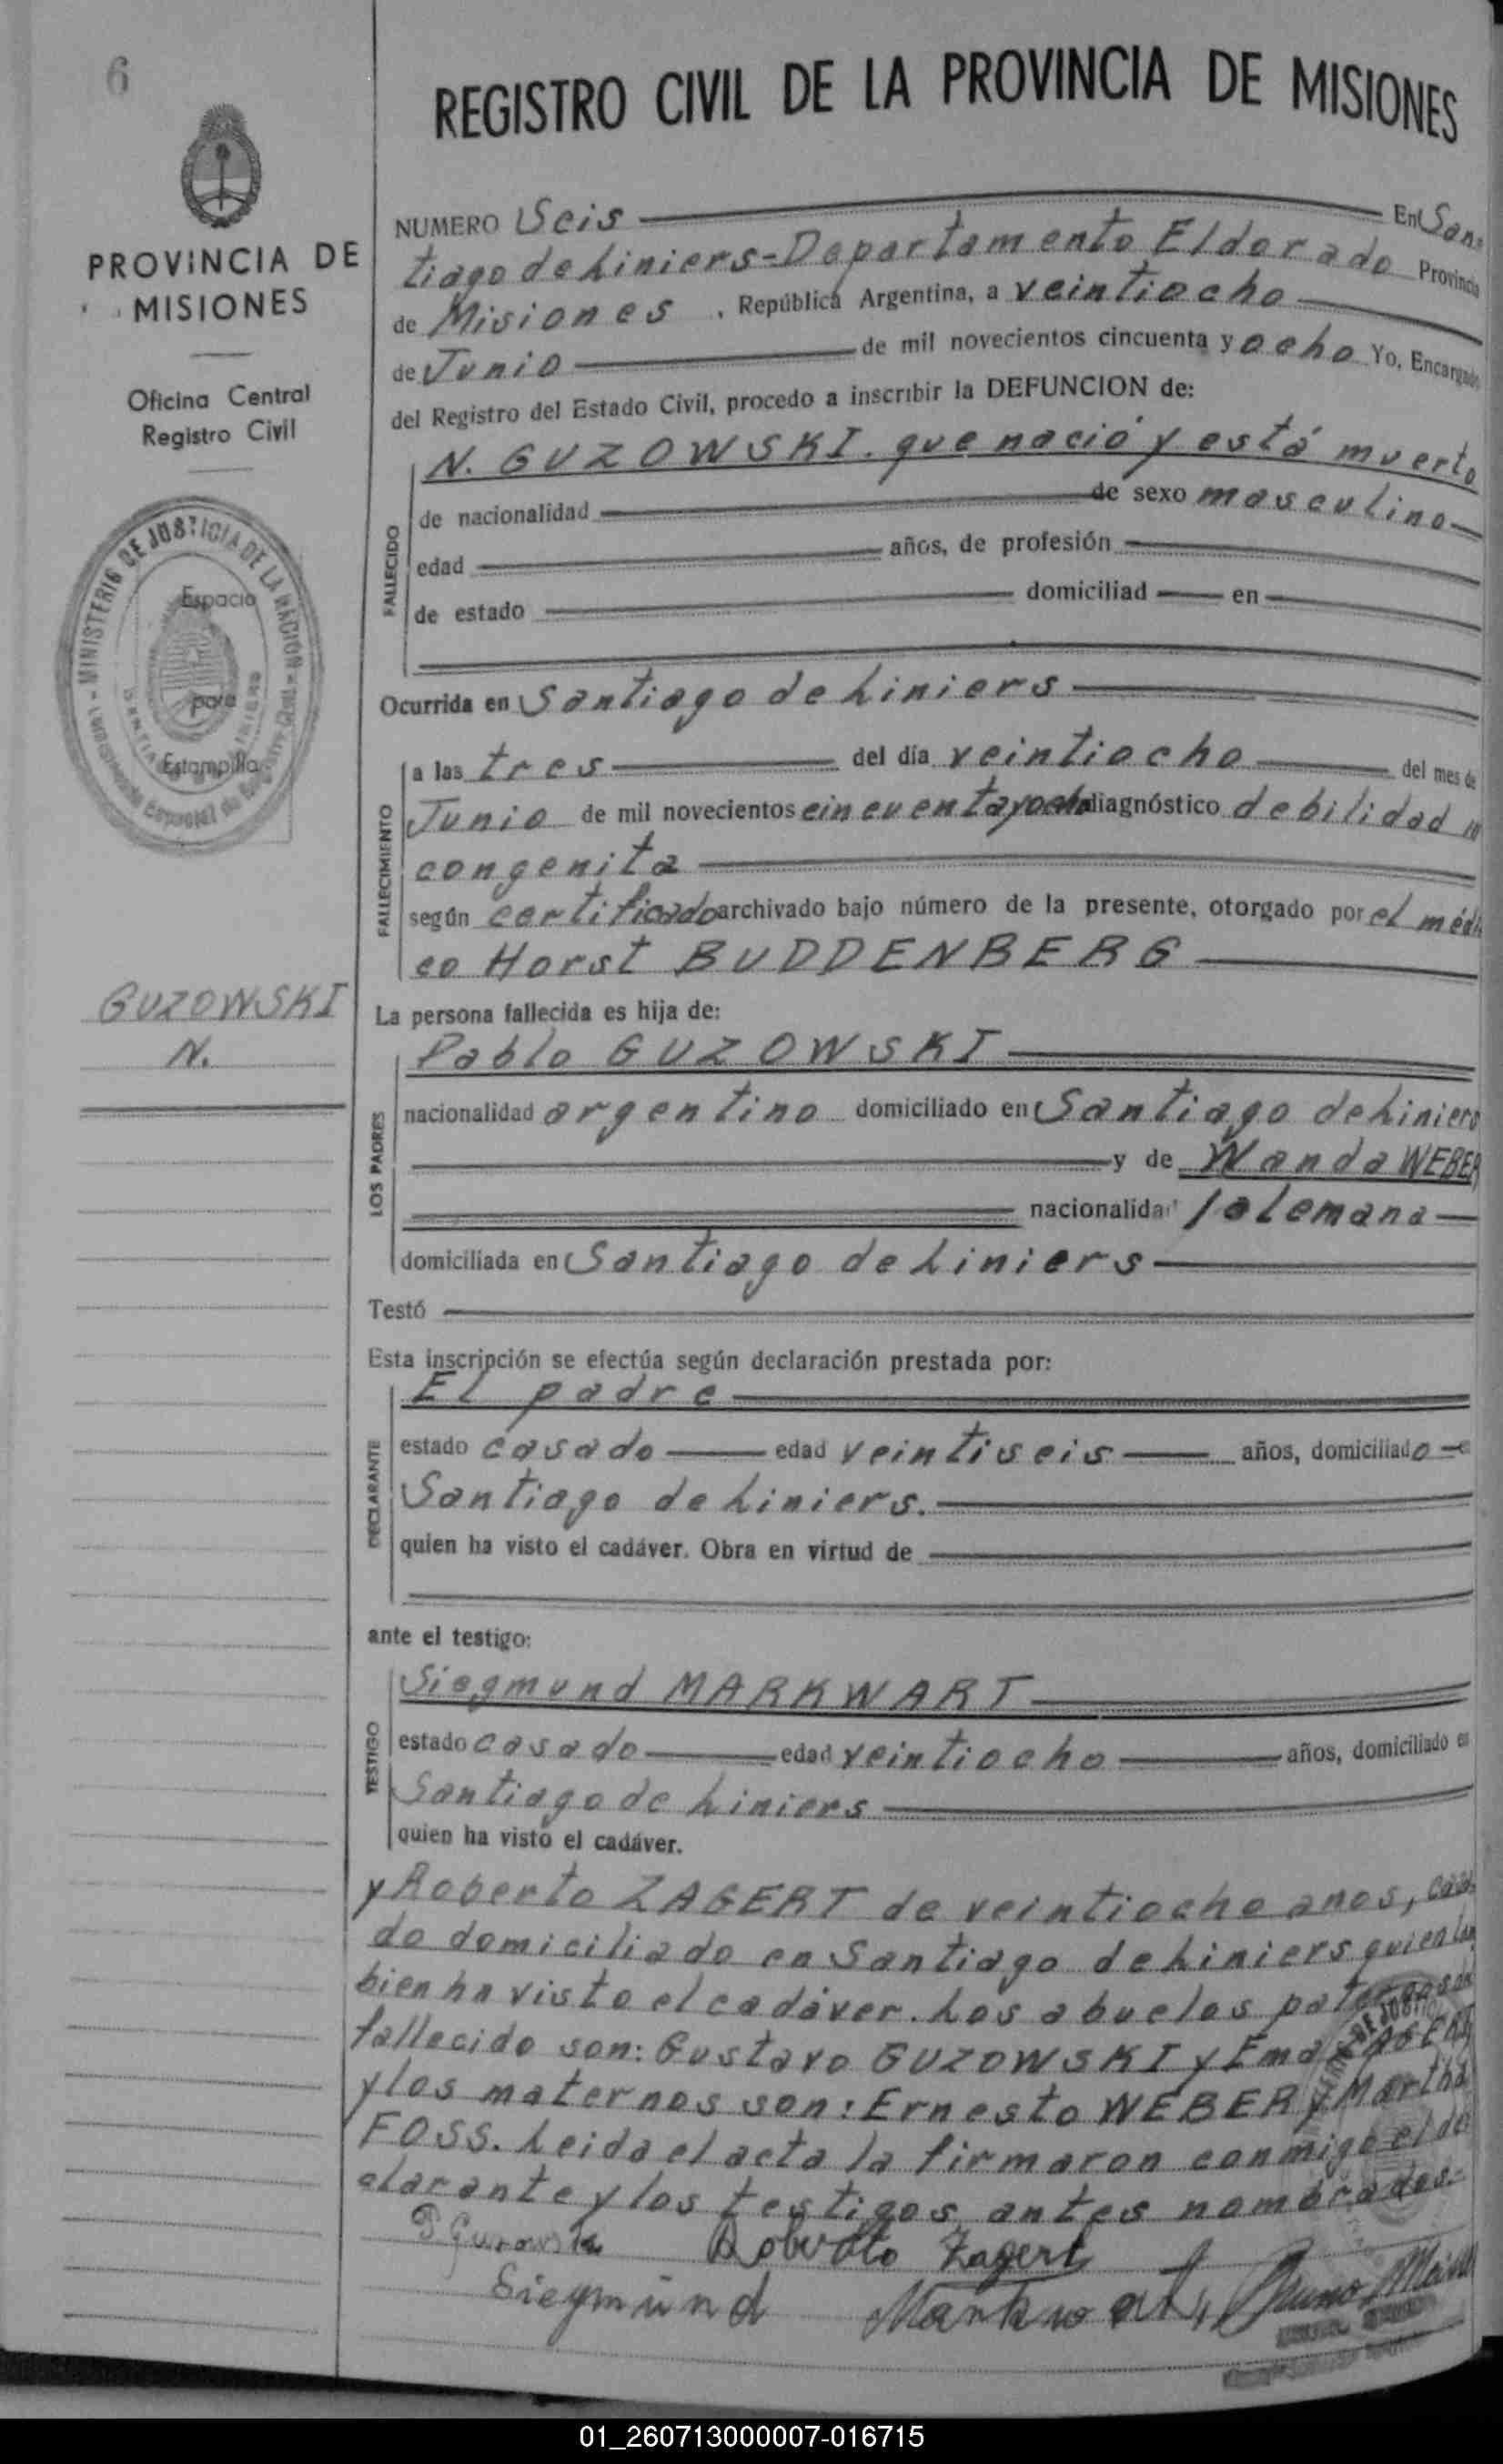 6
REGISTRO CIVIL DE LA PROVINCIA DE MISIONES
PROVINCIA DE
MISIONES
Oficina Central
Registro Civil
MINISTERIO DE JUSTICIA DE LA NACION
Espacio
para
Estampilla
GUZOWSKI
N.
NUMERO Seis En San-
tiago de Liniers-Departamento Eldorado Provincia
de Misiones, República Argentina, a veintiocho
de Junio de mil novecientos cincuenta y ocho Yo, Encargado
del Registro del Estado Civil, procedo a inscribir la DEFUNCION de:
FALLECIDO
N. GUZOWSKI. que nació y está muerto
de nacionalidad de sexo masculino
edad años, de profesión
de estado domiciliad en
Ocurrida en Santiago de Liniers
FALLECIMIENTO
a las tres del día veintiocho del mes de
Junio de mil novecientos cincuentayocho diagnóstico debilidad
congenita
según certificado archivado bajo número de la presente, otorgado por el médi
co Horst BUDDENBERG
La persona fallecida es hija de:
LOS PADRES
Pablo GUZOWSKI
nacionalidad argentino domiciliado en Santiago de Liniers
y de Wanda WEBER
nacionalidad alemana
domiciliada en Santiago de Liniers
Testó
Esta inscripción se efectúa según declaración prestada por:
DECLARANTE
El padre
estado casado edad veintiseis años, domiciliado e
Santiago de Liniers.
quien ha visto el cadáver. Obra en virtud de
ante el testigo:
TESTIGO
Siegmund MARKWART
estado casado edad veintiocho años, domiciliado en
Santiago de Liniers
quien ha visto el cadáver.
y Roberto ZAGERT de veintiocho anos, casa-
do domiciliado en Santiago de Liniers quien tam
bien ha visto el cadáver. Los abuelos paternos del
fallecido son: Gustavo GUZOWSKI y Ema ZAGERT
y los maternos son: Ernesto WEBER y Martha
FOSS. Leida el acta la firmaron conmigo el de
clarante y los testigos antes nombrados.-
P Guzowski Roberto Zagert
Siegmund Markwart, Bruno
01_260713000007-016715